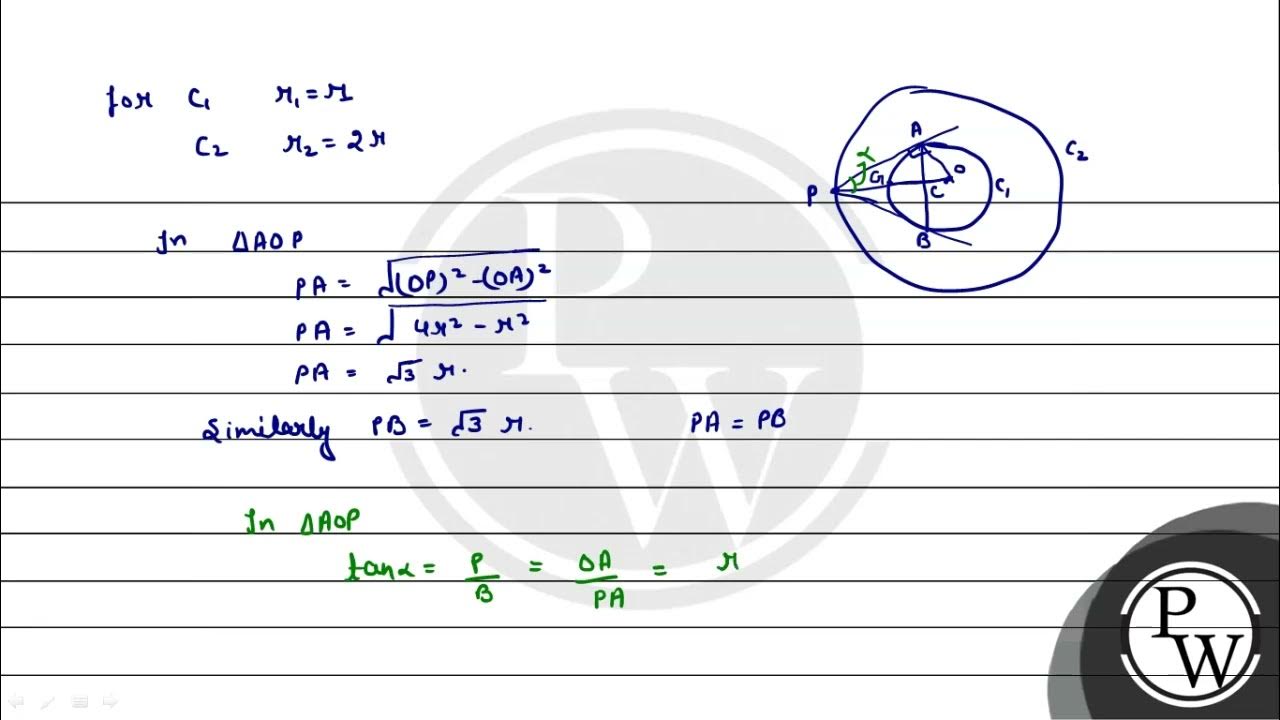 for C₁ r₁ = r
C₂ r₂ = 2r
A
α
C₂
P
G
O
C
C₁
B
In ΔAOP
PA = √(OP)² - (OA)²
PA = √4r² - r²
PA = √3 r.
Similarly PB = √3 r. PA = PB
In ΔAOP
tanα = P/B = OA/PA = r
P
W
P
W